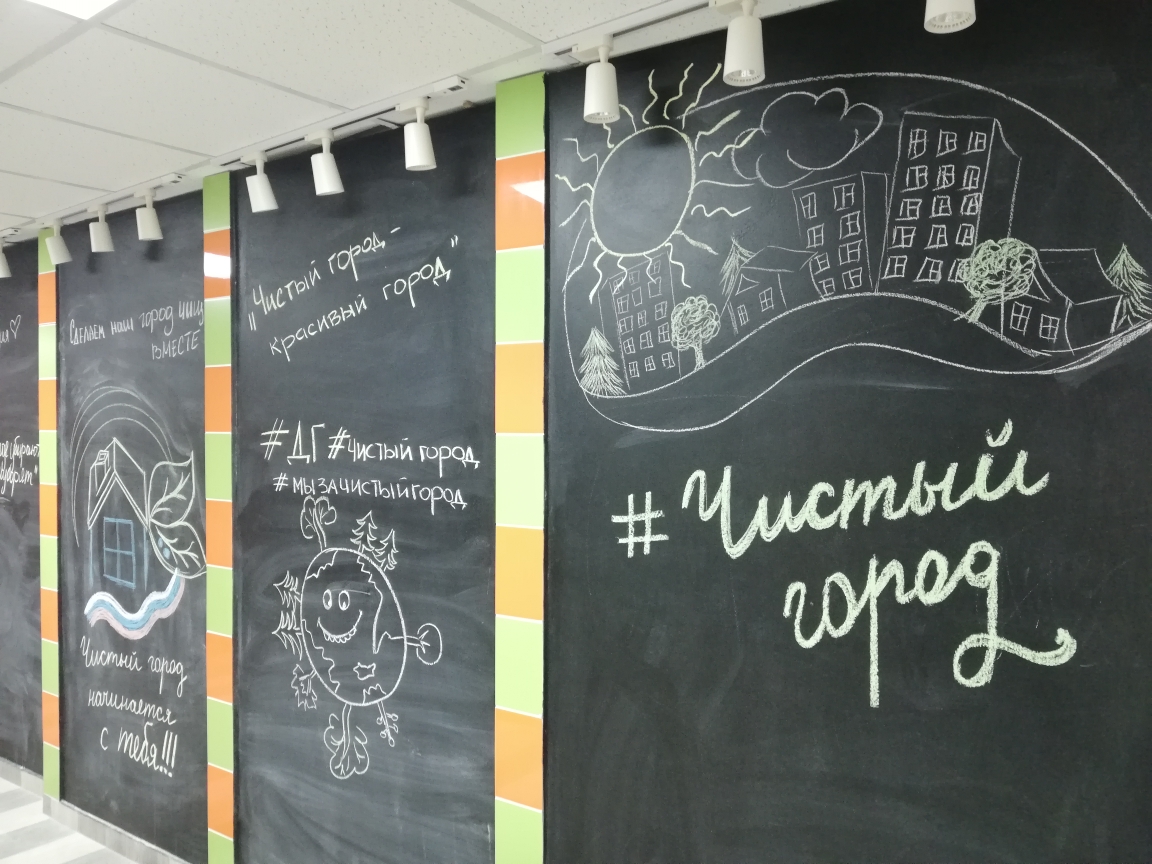 Сделаем наш город чище
ВМЕСТЕ
Чистый город
начинается
с тебя!!!
"Чистый город -
красивый город"
#ДГ #Чистый город
#мызачистыйгород
#Чистый
город